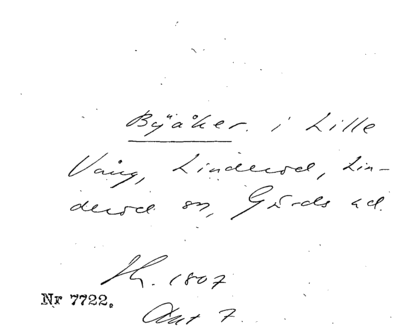 Byåker i Lille
Vång, Linderöd, Lin-
deröd sn, Gärds hd.
1807
Nr 7722.
Akt 7